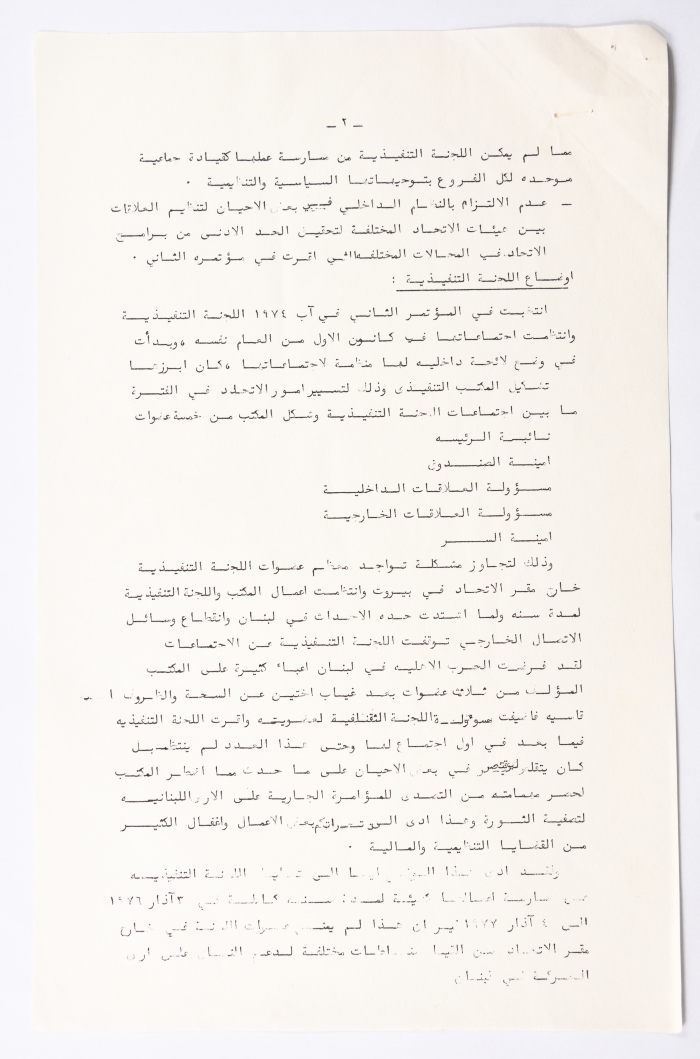 ـ ٢ ـ
مما لم يمكن اللجنة التنفيذية من ممارسة عملها كقيادة جماعية
موحده لكل الفروع بتوجيهاتها السياسية والتنظيمية .
ـ عدم الالتزام بالنظام الداخلي في بعض الاحيان لتنظيم العلاقات
بين هيئات الاتحاد المختلفة لتحقيق الحد الادنى من برامج
الاتحاد في المجالات المختلفة التي اقرت في مؤتمره الثاني .
اوضاع اللجنة التنفيذية :
انتخبت في المؤتمر الثاني في آب ١٩٧٤ اللجنة التنفيذية
وانتظمت اجتماعاتها في كانون الاول من العام نفسه ، وبدأت
في وضع لائحة داخليه لها منظمة لاجتماعاتها ، كان ابرزها
تشكيل المكتب التنفيذى وذلك لتسيير امور الاتحاد في الفترة
ما بين اجتماعات اللجنة التنفيذية وشكل المكتب من خمسة عضوات
نائبة الرئيسه
امينة الصندوق
مسؤولة العلاقات الداخلية
مسؤولة العلاقات الخارجية
امينة السر
وذلك لتجاوز مشكلة تواجد معظم عضوات اللجنة التنفيذية
خارج مقر الاتحاد في بيروت وانتظمت اعمال المكتب واللجنة التنفيذية
لمدة سنه ولما اشتدت حده الاحداث في لبنان وانقطاع وسائل
الاتصال الخارجي توقفت اللجنة التنفيذية عن الاجتماعات
لقد فرضت الحرب الاهليه في لبنان اعباء كثيرة على المكتب
المؤلف من ثلاث عضوات بعد غياب اختين عن الساحة والظروف ا
قاسيه فاضيفت مسؤولة اللجنة الثقافية لعضويته واقرت اللجنة التنفيذيه
فيما بعد في اول اجتماع لها وحتى هذا العدد لم ينتظم بل
كان يتقلص ليقتصر في بعض الاحيان على ما حدث مما اضطر المكتب
لحصر مهماته من التصدى للمؤامرة الجارية على الارض اللبنانيه
لتصفية الثورة وهذا ادى الى تراكم بعض الاعمال واغفال الكثير
من القضايا التنظيمية والمالية .
ولقد ادى هذا الوضع ايضا الى اللجنة التنفيذيه
عن ممارسة اعمالها كهيئة لمدة سنه كاملة في ٣ آذار ١٩٧٦
الى ٤ آذار ١٩٧٧ غير ان هذا لم يمنع عضوات اللجنة في خارج
مقر الاتحاد من القيام بنشاطات مختلفة لدعم النضال على ارض
المعركة في لبنان